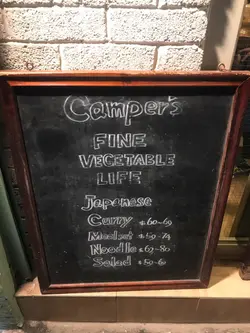 Camper's
FINE
VEGETABLE
LIFE
Japanese
Curry $60~69
Noodle $69~80
Salad